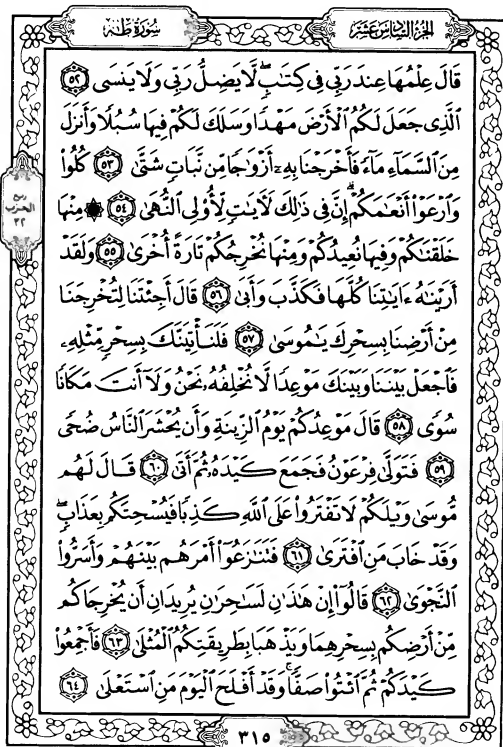 سُورَةُ طه
الجُزءُ السَّادِسَ عَشَرَ
قَالَ عِلْمُهَا عِندَ رَبِّي فِي كِتَٰبٍۖ لَّا يَضِلُّ رَبِّي وَلَا يَنسَى ٥٢
ٱلَّذِي جَعَلَ لَكُمُ ٱلْأَرْضَ مَهْدًا وَسَلَكَ لَكُمْ فِيهَا سُبُلًا وَأَنزَلَ
مِنَ ٱلسَّمَآءِ مَآءً فَأَخْرَجْنَا بِهِۦٓ أَزْوَٰجًا مِّن نَّبَاتٍ شَتَّىٰ ٥٣ كُلُوا۟
وَٱرْعَوْا۟ أَنْعَٰمَكُمْۗ إِنَّ فِي ذَٰلِكَ لَءَايَٰتٍ لِّأُو۟لِي ٱلنُّهَىٰ ٥٤ ۞ مِنْهَا
خَلَقْنَٰكُمْ وَفِيهَا نُعِيدُكُمْ وَمِنْهَا نُخْرِجُكُمْ تَارَةً أُخْرَىٰ ٥٥ وَلَقَدْ
أَرَيْنَٰهُ ءَايَٰتِنَا كُلَّهَا فَكَذَّبَ وَأَبَىٰ ٥٦ قَالَ أَجِئْتَنَا لِتُخْرِجَنَا
مِنْ أَرْضِنَا بِسِحْرِكَ يَٰمُوسَىٰ ٥٧ فَلَنَأْتِيَنَّكَ بِسِحْرٍ مِّثْلِهِۦ
فَٱجْعَلْ بَيْنَنَا وَبَيْنَكَ مَوْعِدًا لَّا نُخْلِفُهُۥ نَحْنُ وَلَآ أَنتَ مَكَانًا
سُوًى ٥٨ قَالَ مَوْعِدُكُمْ يَوْمُ ٱلزِّينَةِ وَأَن يُحْشَرَ ٱلنَّاسُ ضُحًى
٥٩ فَتَوَلَّىٰ فِرْعَوْنُ فَجَمَعَ كَيْدَهُۥ ثُمَّ أَتَىٰ ٦٠ قَالَ لَهُم
مُّوسَىٰ وَيْلَكُمْ لَا تَفْتَرُوا۟ عَلَى ٱللَّهِ كَذِبًا فَيُسْحِتَكُم بِعَذَابٍۖ
وَقَدْ خَابَ مَنِ ٱفْتَرَىٰ ٦١ فَتَنَٰزَعُوٓا۟ أَمْرَهُم بَيْنَهُمْ وَأَسَرُّوا۟
ٱلنَّجْوَىٰ ٦٢ قَالُوٓا۟ إِنْ هَٰذَٰنِ لَسَٰحِرَٰنِ يُرِيدَانِ أَن يُخْرِجَاكُم
مِّنْ أَرْضِكُم بِسِحْرِهِمَا وَيَذْهَبَا بِطَرِيقَتِكُمُ ٱلْمُثْلَىٰ ٦٣ فَأَجْمِعُوا۟
كَيْدَكُمْ ثُمَّ ٱئْتُوا۟ صَفًّاۚ وَقَدْ أَفْلَحَ ٱلْيَوْمَ مَنِ ٱسْتَعْلَىٰ ٦٤
ربع
الحزب
٣٢
٣١٥